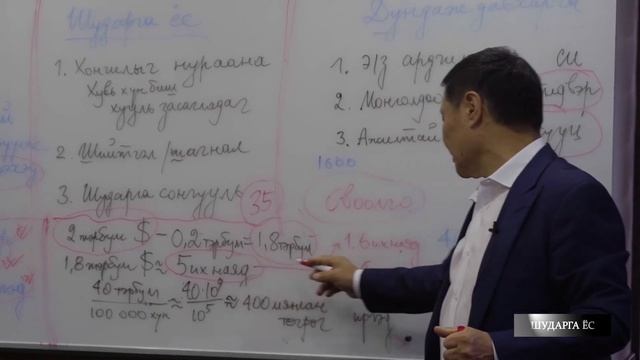 Шударга ёс
1. Хоншлыг нураана
Хувь хүн биш
хууль засагладаг
2. Шийтгэл / шагнал
3. Шударга сонгууль
35
2 тэрбум $ – 0,2 тэрбум = 1,8 тэрбум
1,8 тэрбум $ ≈ 5 их наяд
40 тэрбум / 100 000 хүн ≈ 40·10⁹ / 10⁵ ≈ 400 мянган
төгрөг
Дундаж давхарга
1. Э/З ардчи СИ
2. Монголда йдвэр
3. Ажилтай ууц
1600
1.6 их наяд
ШУДАРГА ЁС